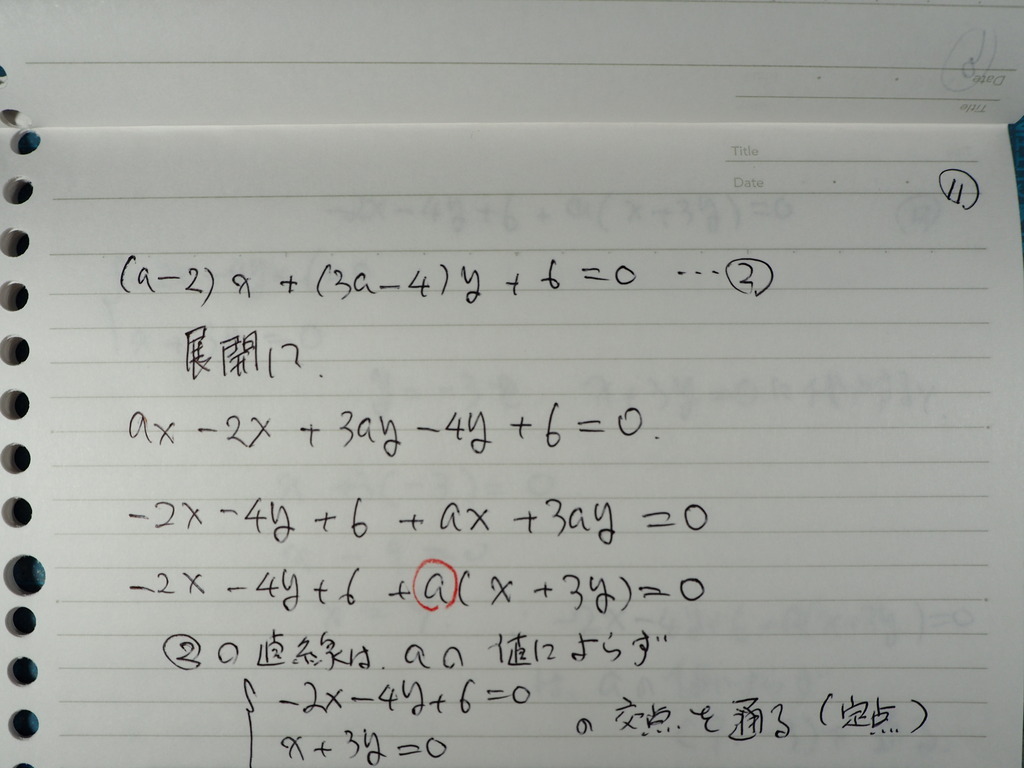 Title
Date
⑪
(a-2)x+(3a-4)y+6=0 …②
展開して.
ax-2x+3ay-4y+6=0.
-2x-4y+6+ax+3ay=0
-2x-4y+6+a(x+3y)=0
②の直線は、aの値によらず
-2x-4y+6=0
x+3y=0
の交点を通る(定点)